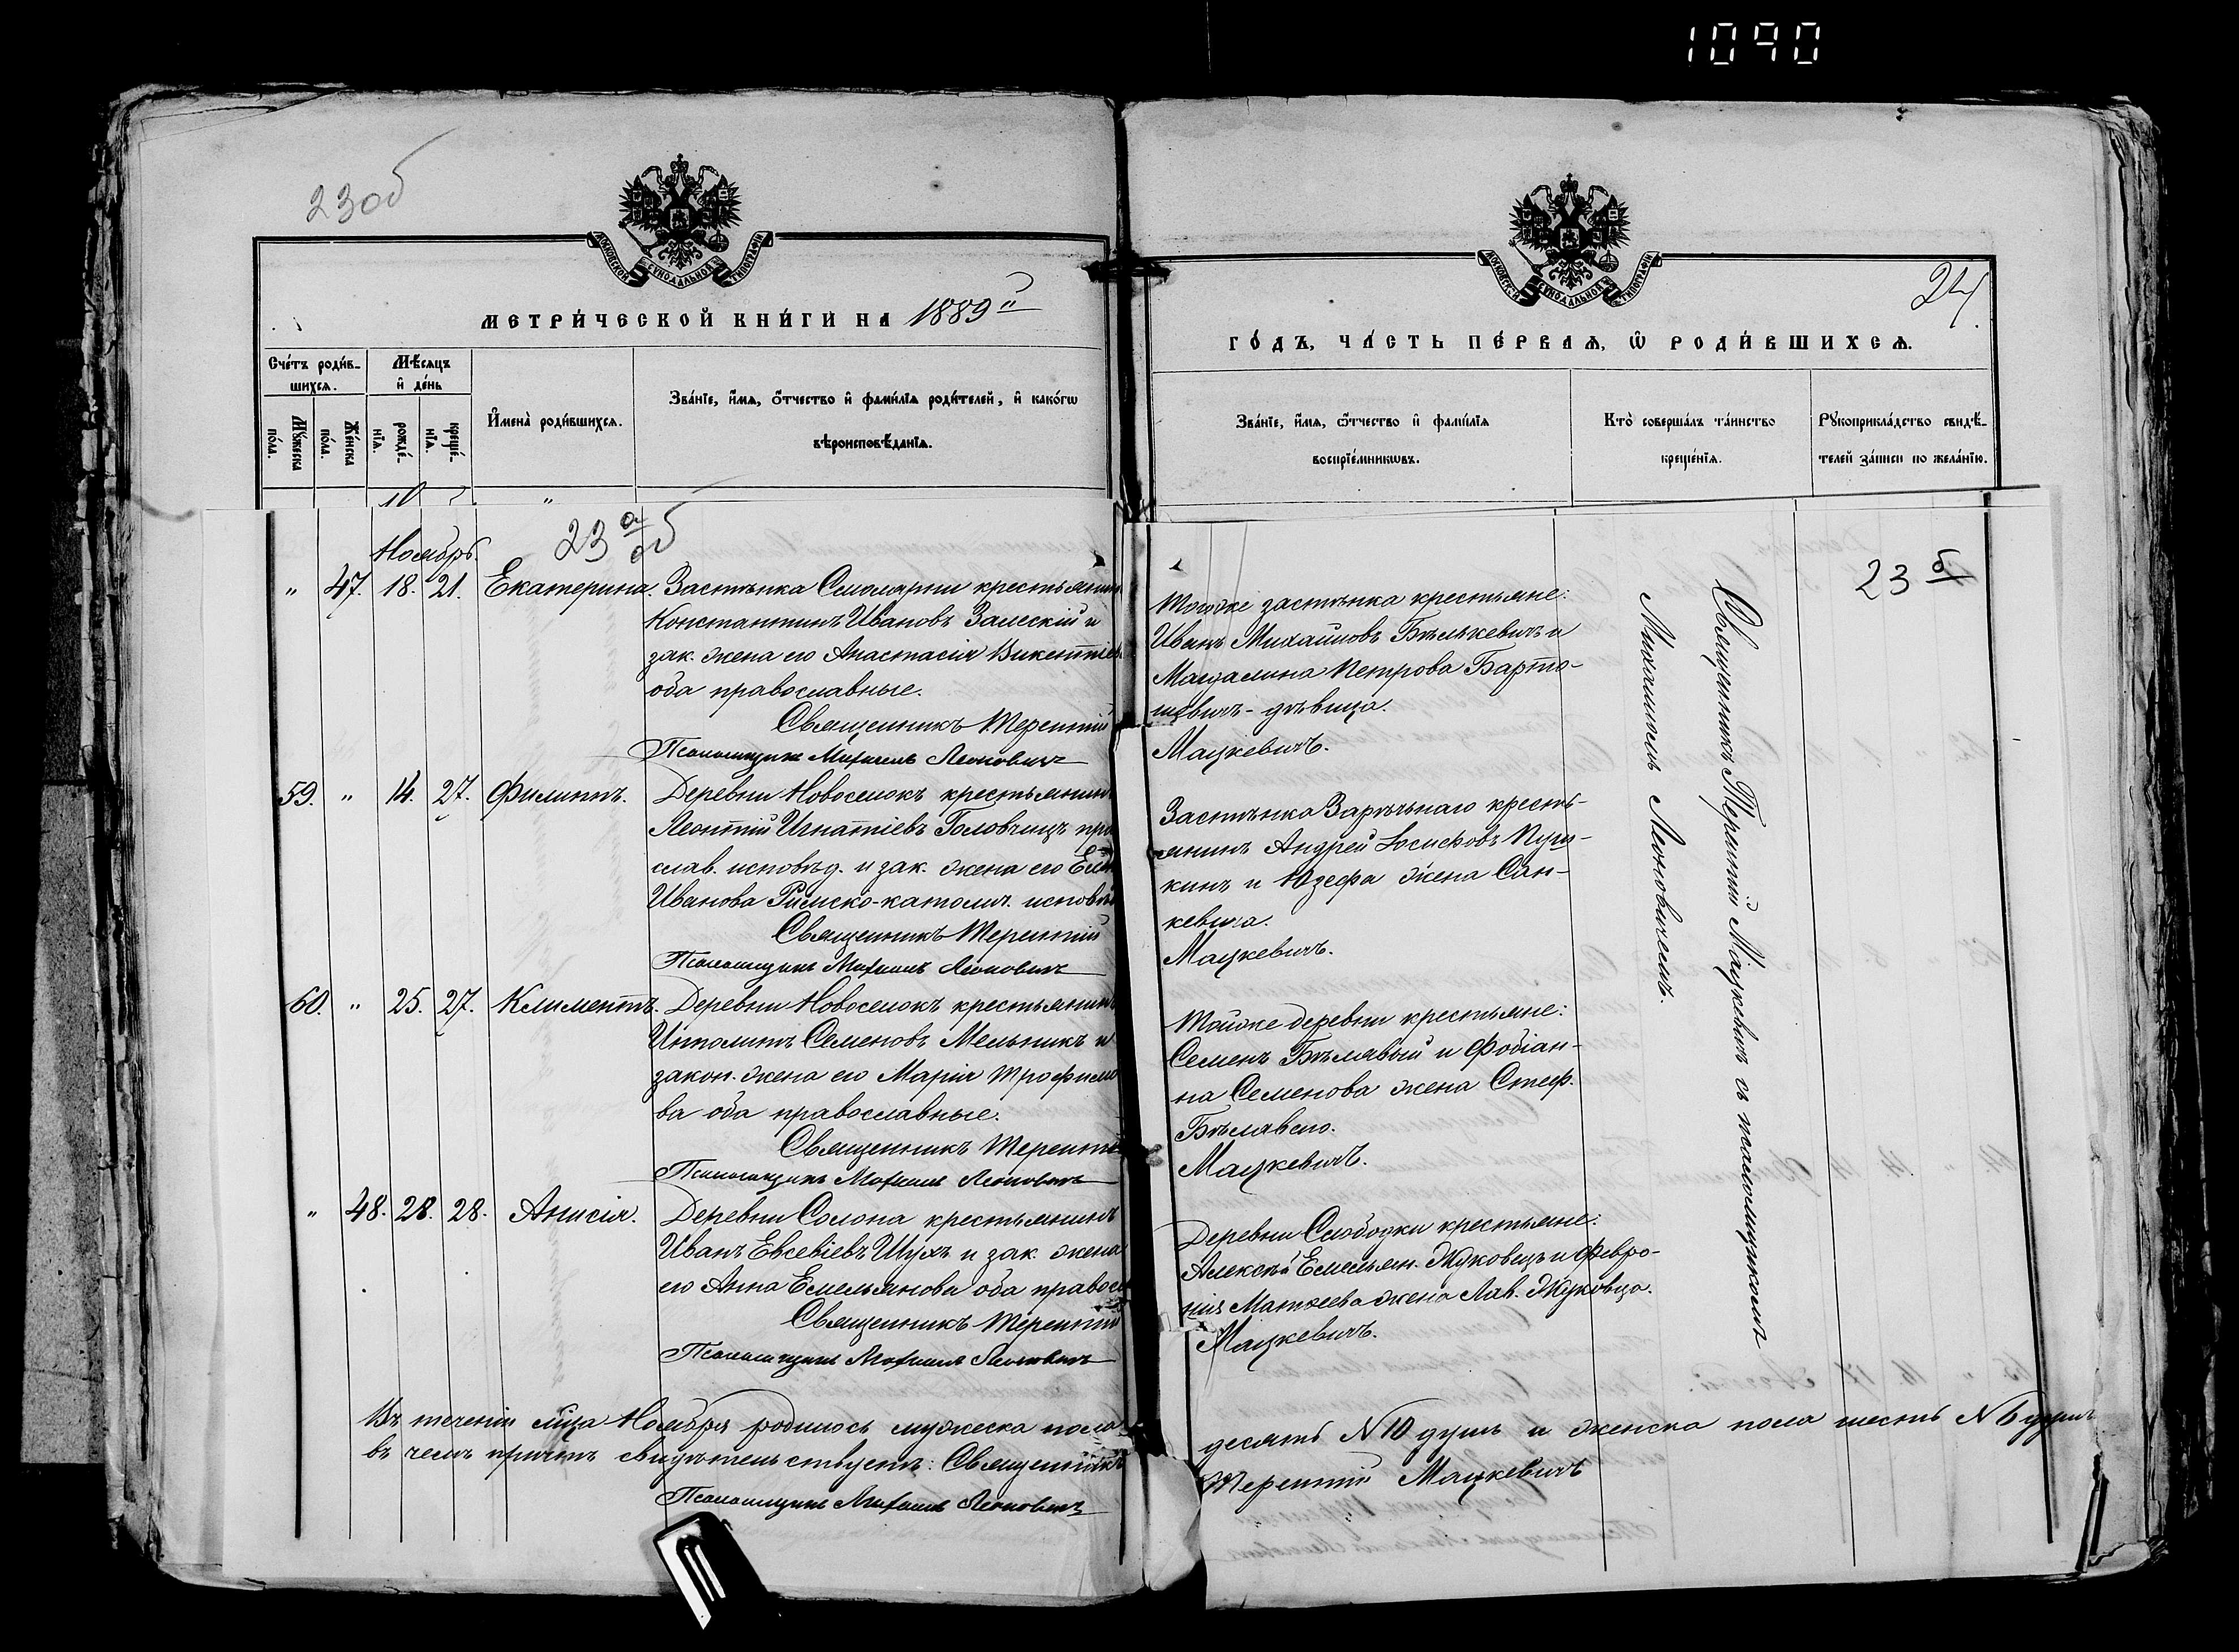 1090
23об
МОСКОВСКОЙ СѴНОДАЛЬНОЙ ТИПОГРАФІИ
МЕТРИ́ЧЕСКОЙ КНИ́ГИ НА 1889й
Сче́тъ роди́в-
шихсѧ.
Мѣ́сѧцъ
и҆ де́нь
Мꙋ́жеска
по́ла.
Же́нска
по́ла.
рожде́-
нїѧ.
креще́-
нїѧ.
И҆мена̀ роди́вшихсѧ.
Зва́нїе, и҆́мѧ, ѻ҆́тчество и҆ фами́лїѧ роди́телей, и҆ како́гѡ
вѣроисповѣ́данїѧ.
10
23 а об
Ноябрь
" 47. 18. 21. Екатерина. Застѣнка Смолярни крестьянин
Константинъ Ивановъ Залескій и
зак. жена его Анастасія Викентіев
оба православные.
Священникъ Терентій
Псаломщикъ Михаилъ Леонович
59. " 14. 27. Филиппъ. Деревни Новоселокъ крестьянин
Леонтій Игнатіевъ Головчицъ пра
слав. исповѣд. и зак. жена его Еле
Иванова Римско-католич. исповѣ
Священникъ Терентій
Псаломщикъ Михаилъ Леонович
60. " 25. 27. Климентъ. Деревни Новоселокъ крестьянин
Ипполитъ Семеновъ Мельникъ и
закон. жена его Марія Трофимо
ва оба православные.
Священникъ Терентій
Псаломщикъ Михаилъ Леонович
" 48. 28. 28. Анисія. Деревни Солона крестьянинъ
Иванъ Евсевіевъ Шухъ и зак. жена
его Анна Емельянова оба правосл
Священникъ Терентій
Псаломщикъ Михаилъ Леонович
Въ теченіи мѣсца Ноября родилось мужеска пола
въ чемъ причтъ свидѣтельствуетъ: Священникъ
Псаломщикъ Михаилъ Леонович
МОСКОВСКОЙ СѴНОДАЛЬНОЙ ТИПОГРАФІИ
24.
ГО́ДЪ, ЧА́СТЬ ПЕ́РВАѦ, Ѽ РОДИ́ВШИХСѦ.
Зва́нїе, и҆́мѧ, ѻ҆́тчество и҆ фами́лїѧ
воспрїе́мникѡвъ.
Кто̀ соверша́лъ та́инство
креще́нїѧ.
Рꙋкоприкла́дство свидѣ́-
телей за́писи по жела́нїю.
23 б
Тогоже застѣнка крестьяне:
Иванъ Михайловъ Бѣлькевичъ и
Магдалина Петрова Барто-
шевичъ - дѣвица.
Мацкевичъ.
Застѣнка Зарѣчнаго кресть-
янинъ Андрей Іосифовъ
кинъ и Юзефа жена Сан-
кевича.
Мацкевичъ.
Тойже деревни крестьяне:
Семенъ Бѣлявый и Фабіан-
на Семенова жена Стеф.
Бѣляваго.
Мацкевичъ.
Деревни Слободки крестьяне:
Алексѣй Емельян. Жуковецъ и Февро-
нія Матѳеева жена Лав. Жуковца.
Мацкевичъ.
десять N 10 душъ и женска пола шесть N 6 душъ
Терентій Мацкевичъ
Священникъ Терентій Мацкевичъ съ псаломщикомъ
Михаиломъ Леоновичемъ.